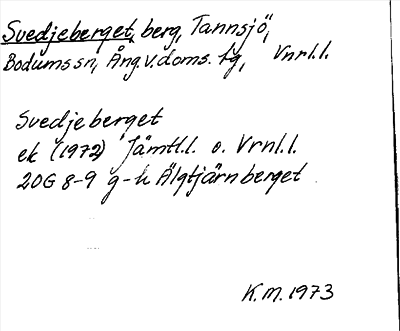 Svedjeberget, berg, Tannsjö,
Bodums sn, Ång. v. doms. tg, Vnrl.l.
Svedjeberget
ek (1972) Jämtl.l. o. Vrnl.l.
20G 8-9 g-h Älgtjärnberget
K.M. 1973